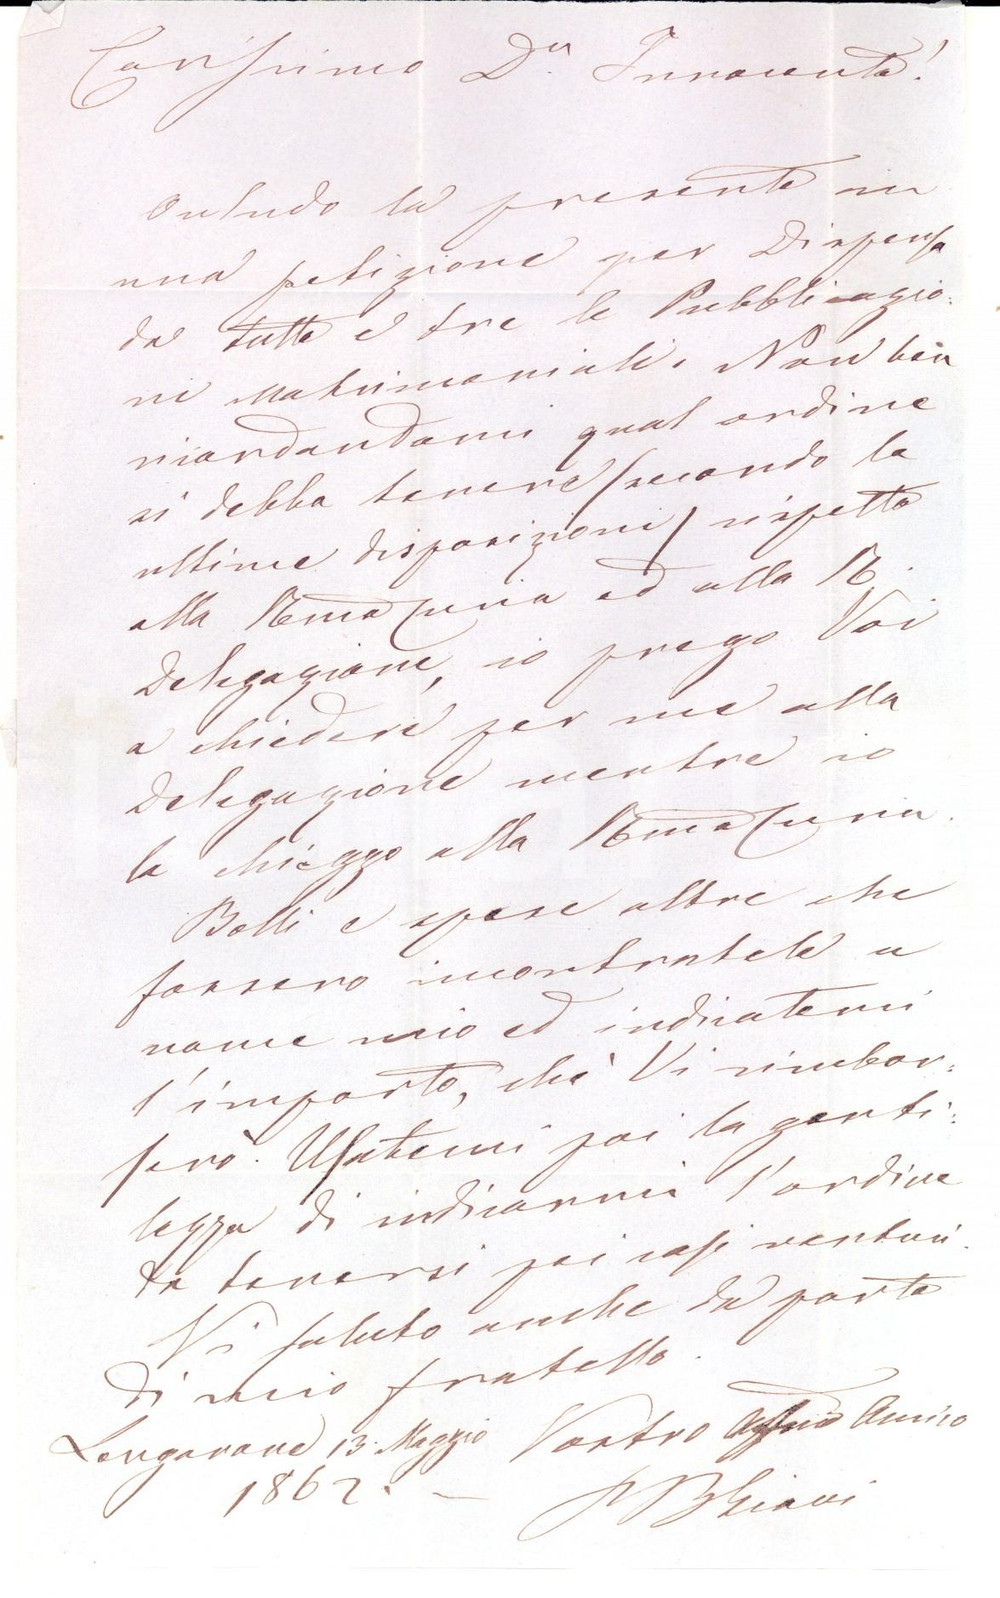 Carissimo D.n Innocente!
Includo la presente in
una petizione per Dispensa
da tutte e tre le Pubblicazio:
ni Matrimoniali. Non ben
ricordandomi qual ordine
si debba tenere (secondo le
ultime disposizioni) rispetto
alla Rma Curia ed alla R.
Delegazione, io prego Voi
a chiedere per me alla
Delegazione mentre io
la chieggo alla Rma Curia.
Bolli e spese altre che
fossero incontratele a
nome mio ed indicatemi
l'importo, chè Vi rimbor:
serò. Usatemi poi la genti:
lezza di indicarmi l'ordine
da tenersi pei casi venturi.
Vi saluto anche da parte
di mio fratello.
Longarone 13 Maggio Vostro Affmo Amico
1862. —